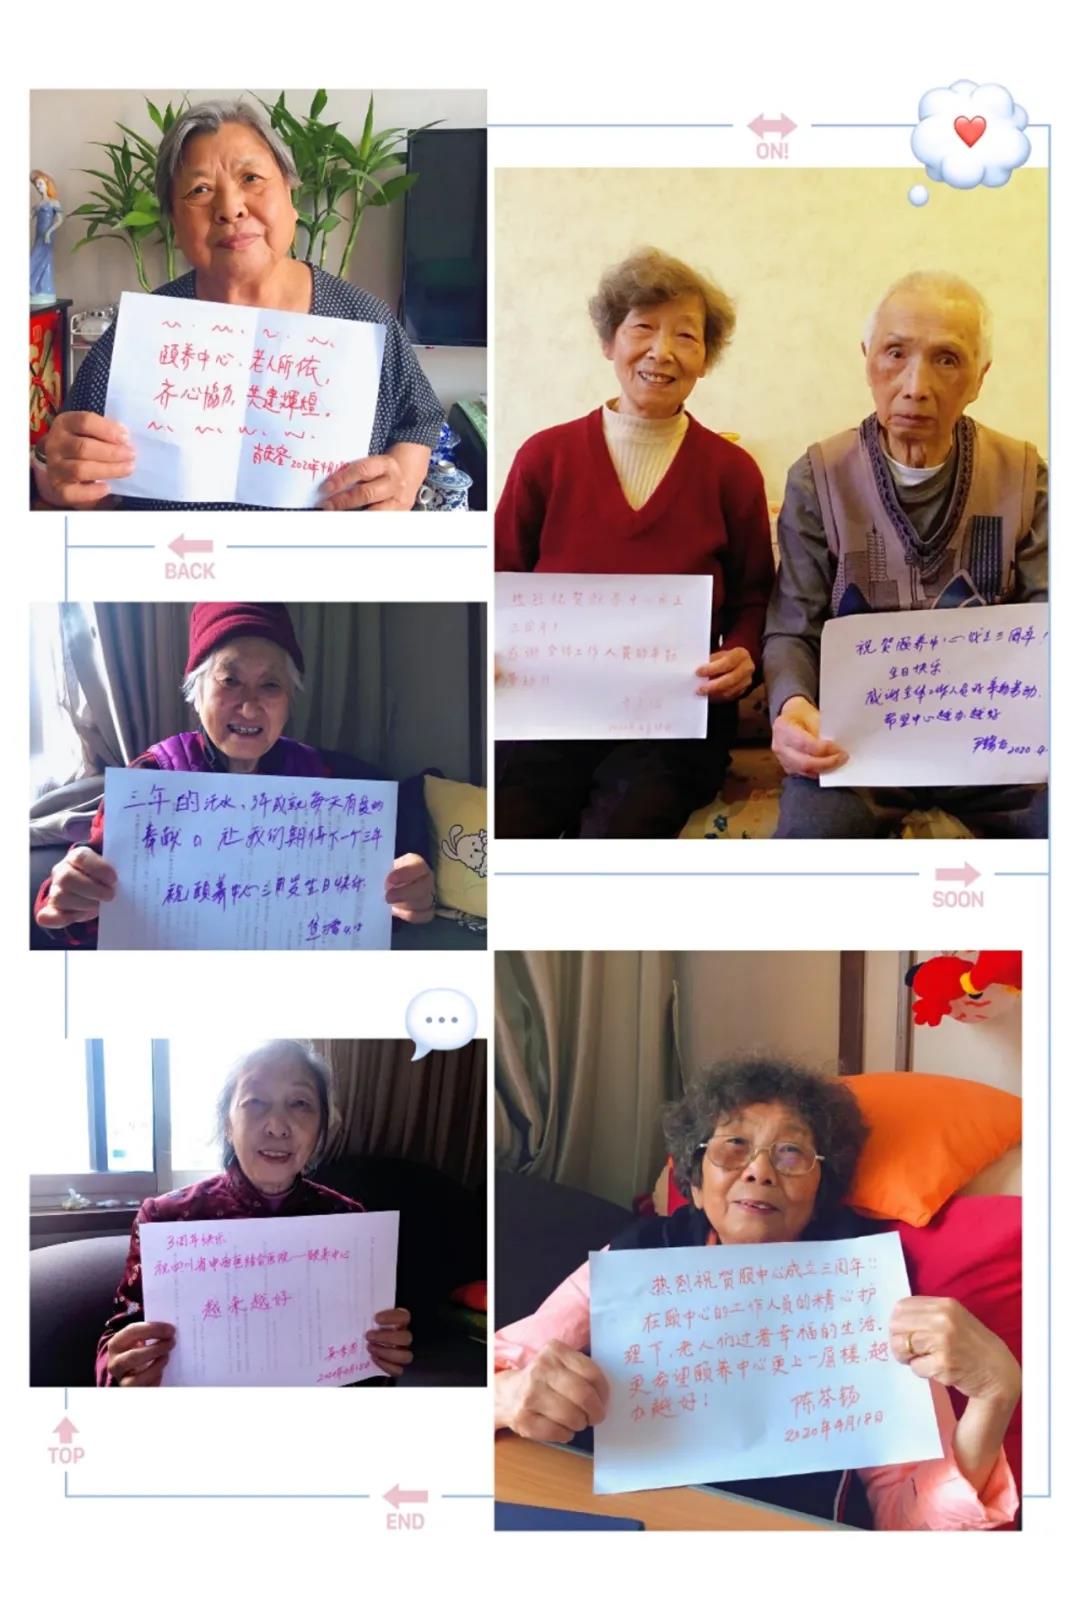 颐养中心、老人所依，
齐心協力，共建輝煌。
2020年4月18
ON!
祝贺颐养中心成立三周年！
生日快乐
感谢全体工作人员的辛勤劳动，
希望中心越办越好
2020.4
三周年！
感谢全体工作人员的辛勤
BACK
三年的活水、
每天有爱的
奉献。让我们期待下一个三年
祝颐养中心三周岁生日快乐
4.18
SOON
3周年快乐
祝四川省中西医结合医院——颐养中心
越来越好
2020年4月18日
热烈祝贺颐中心成立三周年!!
在颐中心的工作人员的精心护
理下，老人们过着幸福的生活.
更希望颐养中心更上一层楼,越
办越好！
陈芬锡
2020年4月18日
TOP
END